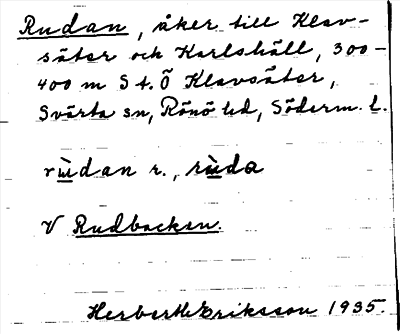 Rudan, åker till Klev-
säter och Karlshäll, 300-
400 m S t. Ö Klevsäter,
Svärta sn, Rönö hd, Söderm. l.
rùdan r., rùda
V Rudbacken.
Herbert Eriksson 1935.